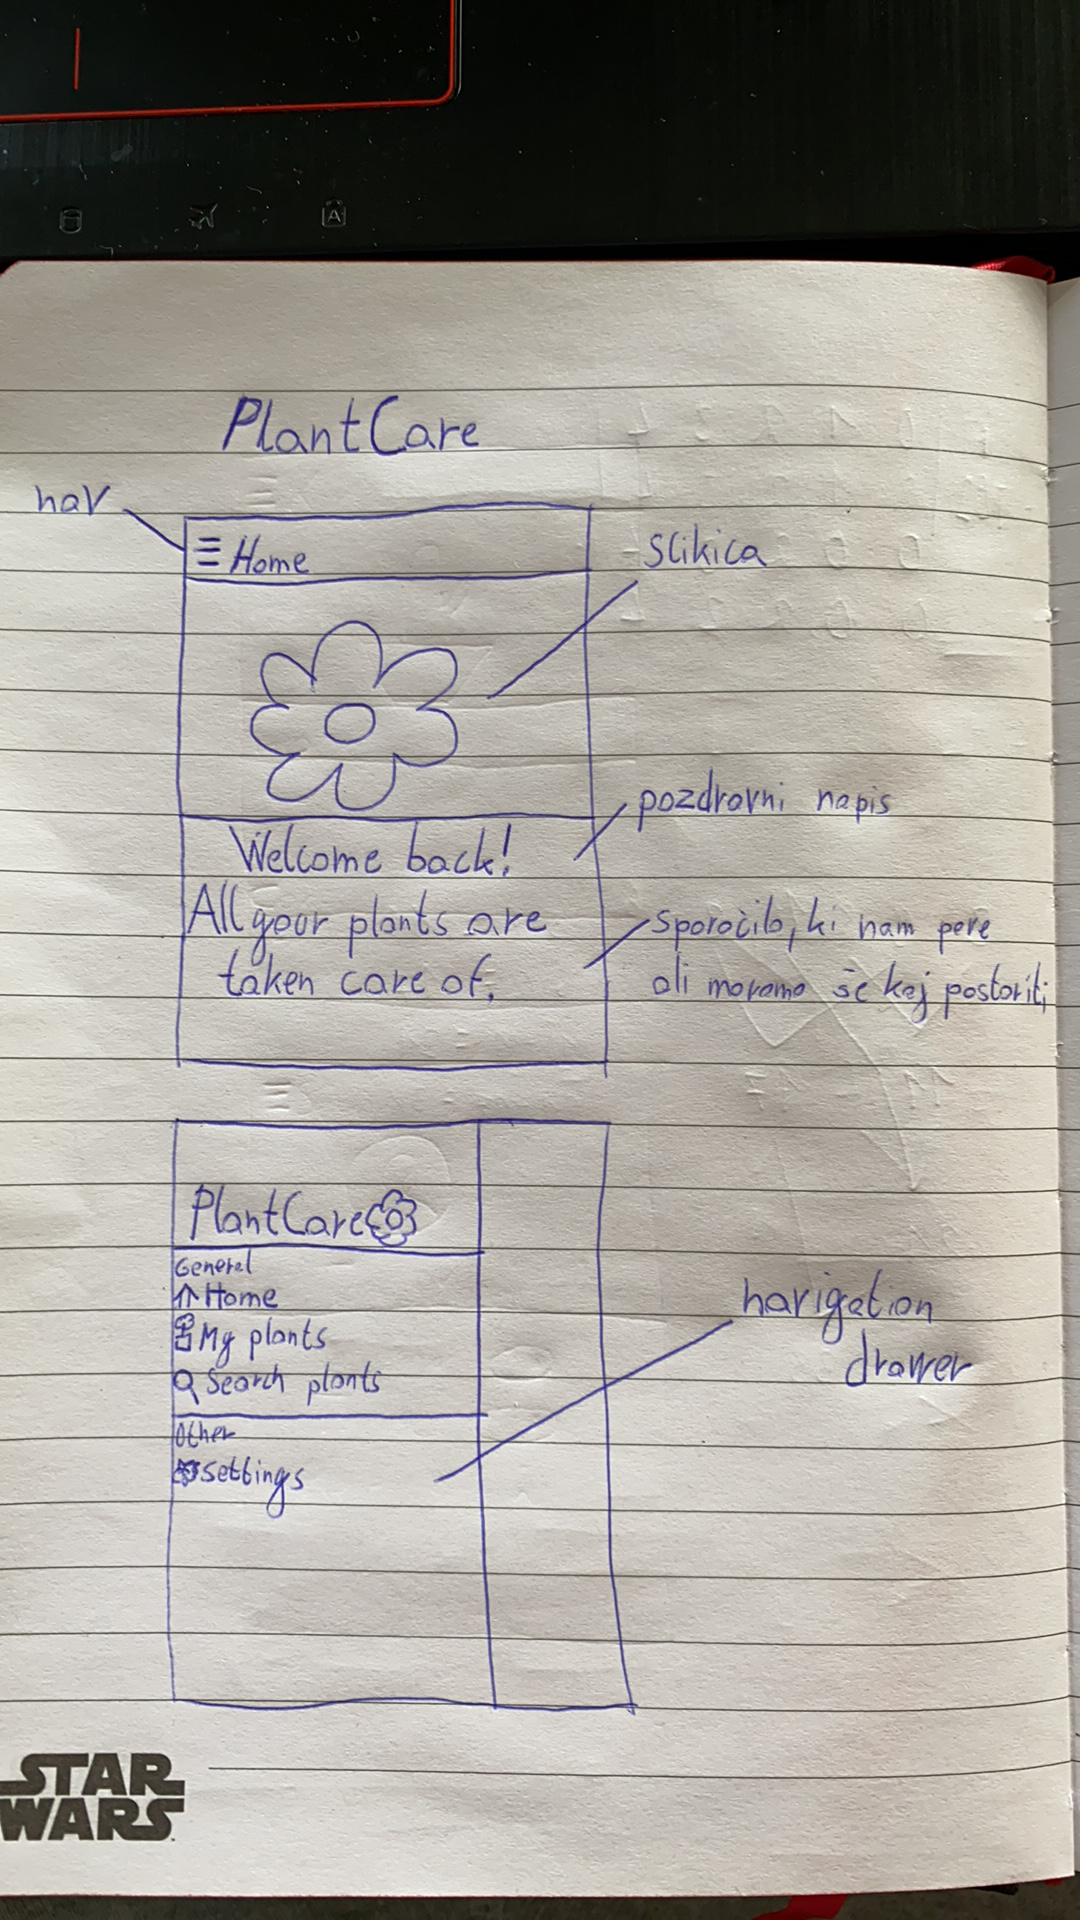 PlantCare
nav
Home
slikica
pozdravni napis
Welcome back!
All your plants are
taken care of.
sporočilo, ki nam pove
ali moramo še kaj postoriti
PlantCare
General
Home
My plants
Search plants
navigation
drawer
Other
Settings
STAR
WARS
A